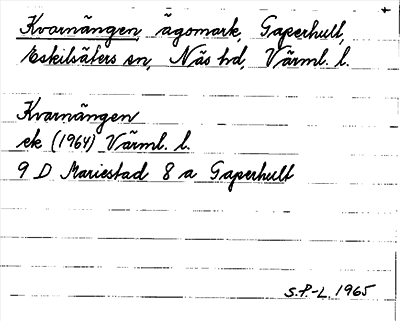 Kvarnängen, ägomark, Gaperhult,
Eskilsäters sn, Näs hd, Värml. l.
Kvarnängen
ek (1964) Värml. l.
9 D Mariestad 8 a Gaperhult
S.P.-L. 1965